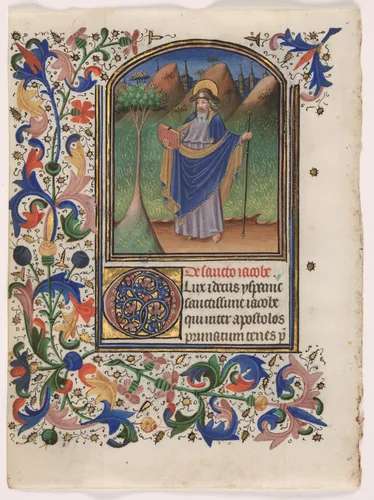 De sancto iacobe.
O Lux ⁊ decus yspanie
sanctissime iacobe
qui inter apostolos
primatum tenes